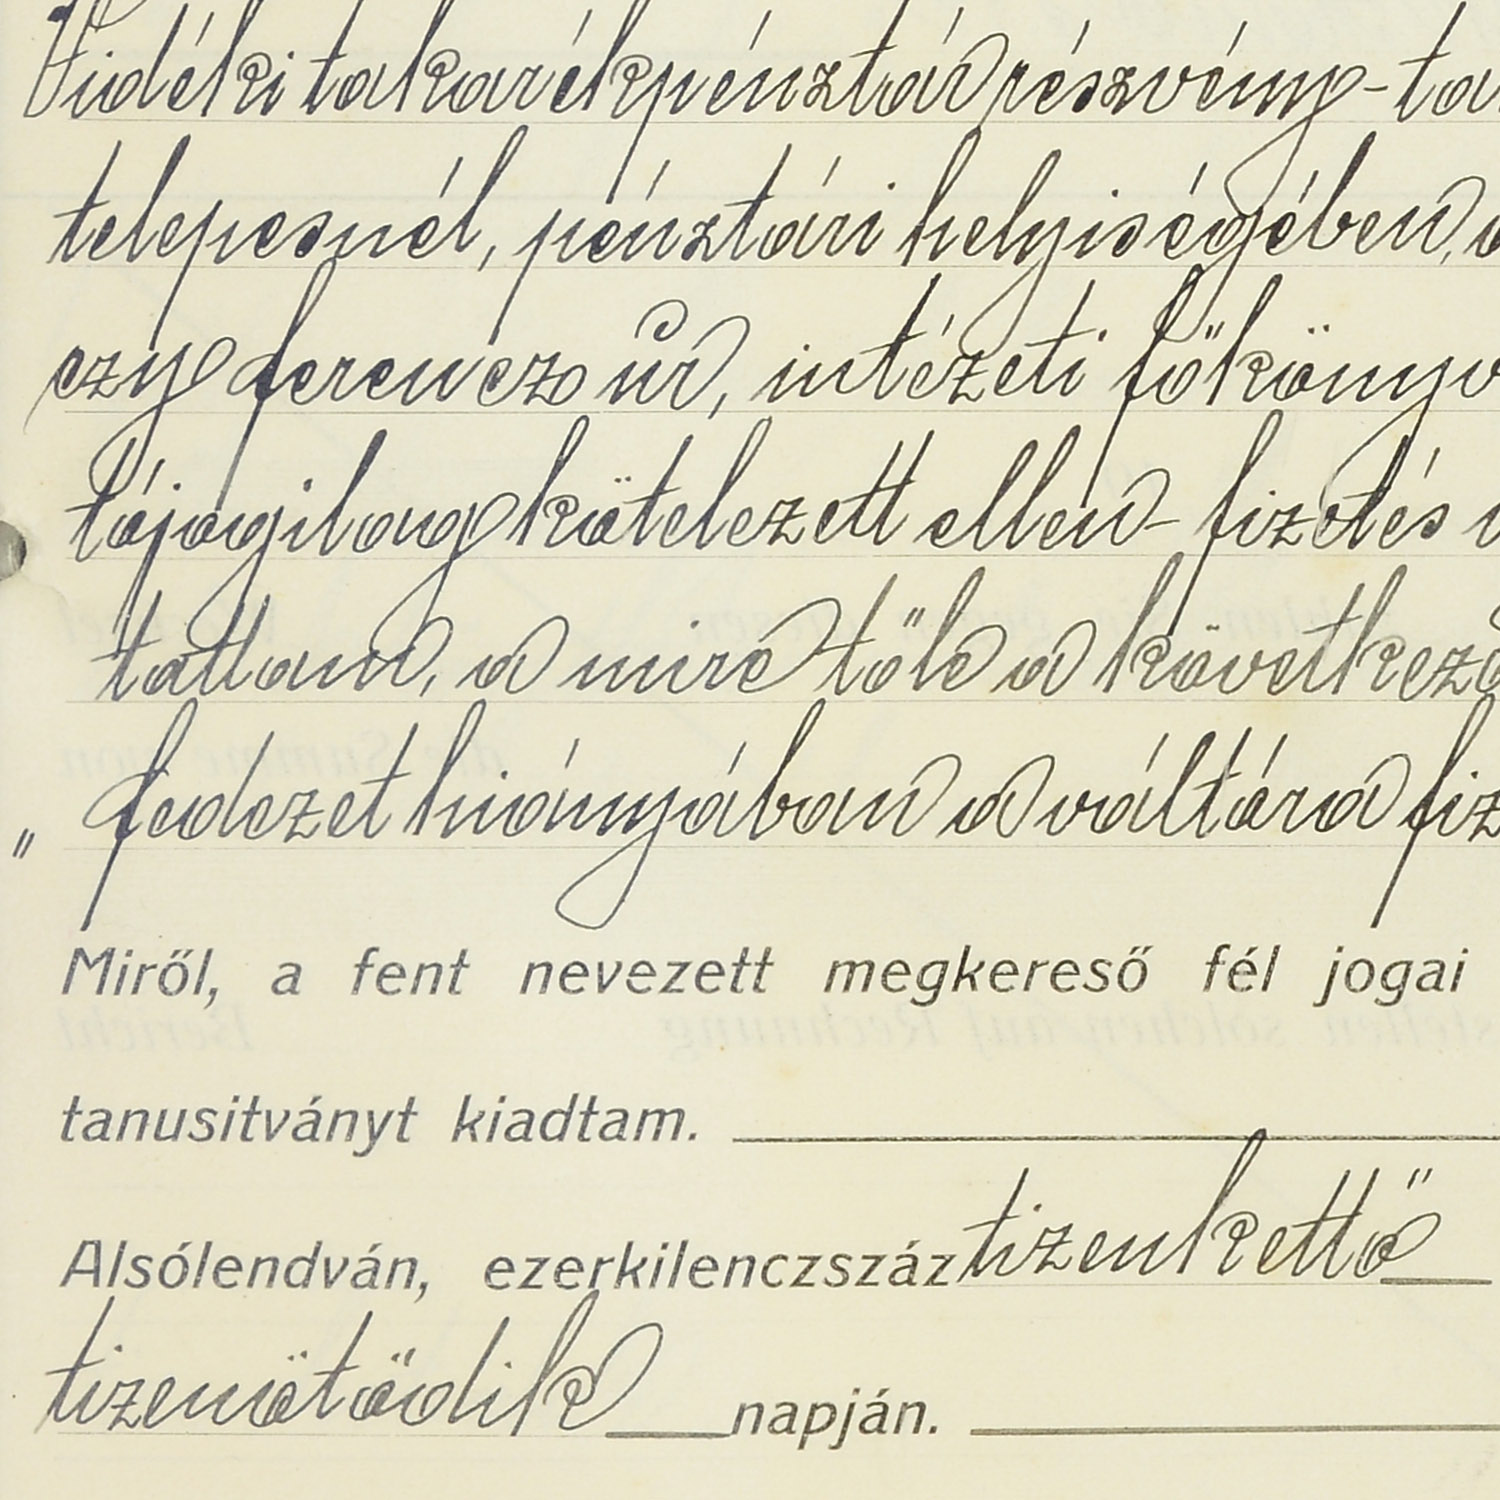 Vidéki takarékpénztár részvény-ta
telepesnél, pénztári helyiségében, a
czy ferencz úr, intézeti főkönyv
tójogilag kötelezett ellen- fizetés v
tattam, a mire tőle a következő
" fedezet hiányában a váltóra fiz
Miről, a fent nevezett megkereső fél jogai
tanusitványt kiadtam.
Alsólendván, ezerkilenczszáz tizenkettő
tizenötödik napján.